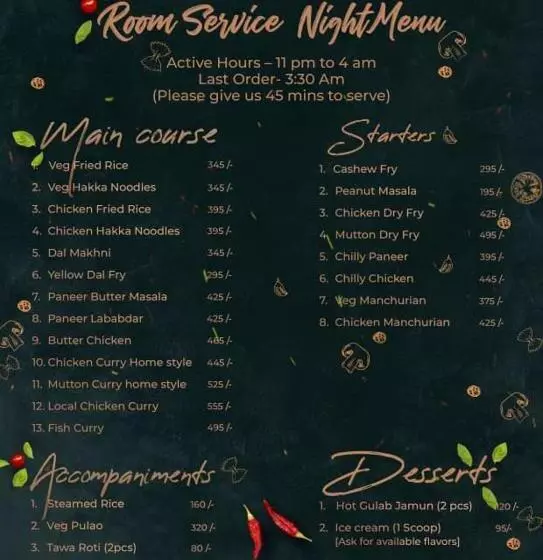 Room Service Night Menu
Active Hours – 11 pm to 4 am
Last Order- 3:30 Am
(Please give us 45 mins to serve)
Main course
1. Veg Fried Rice 345/-
2. Veg Hakka Noodles 345/-
3. Chicken Fried Rice 395/-
4. Chicken Hakka Noodles 395/-
5. Dal Makhni 345/-
6. Yellow Dal Fry 295/-
7. Paneer Butter Masala 425/-
8. Paneer Lababdar 425/-
9. Butter Chicken 465/-
10. Chicken Curry Home style 445/-
11. Mutton Curry home style 525/-
12. Local Chicken Curry 555/-
13. Fish Curry 495/-
Starters
1. Cashew Fry 295/-
2. Peanut Masala 195/-
3. Chicken Dry Fry 425/-
4. Mutton Dry Fry 495/-
5. Chilly Paneer 395/-
6. Chilly Chicken 445/-
7. Veg Manchurian 375/-
8. Chicken Manchurian 425/-
Accompaniments
1. Steamed Rice 160/-
2. Veg Pulao 320/-
3. Tawa Roti (2pcs) 80/-
Desserts
1. Hot Gulab Jamun (2 pcs) 120/-
2. Ice cream (1 Scoop) 95/-
[Ask for available flavors]